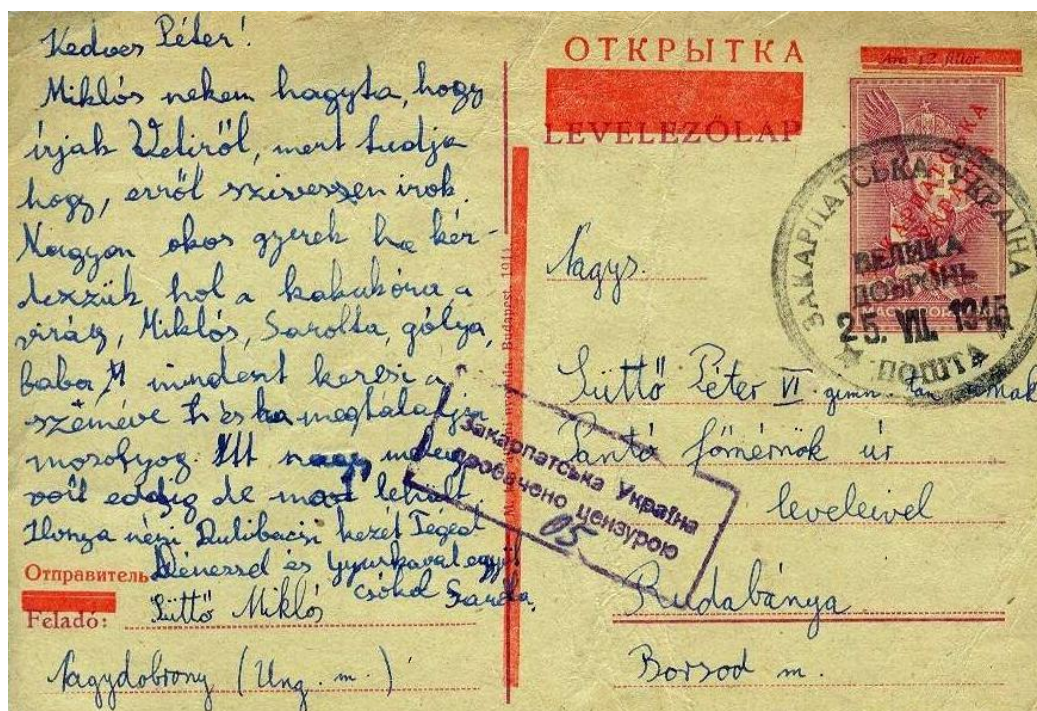 Kedves Péter!
Miklós nekem hagyta, hogy
írjak Vetiről, mert tudja
hogy, erről szivessen irok.
Nagyon okos gyerek ha kér-
dezzük hol a kakukóra, a
virág, Miklós, Sarolta, gólya,
baba, mindent keresi a
szemével és ha megtalálja
mosolyog. Itt nagy meleg
volt eddig de most lehült.
Ilonza néni Dulibácsi kezét Téged
Dénessel és Gyurkával együtt
csókol Sarolta.
Отправитель
Feladó: Süttő Miklós
Nagydobrony (Ung. m.)
ОТКРЫТКА
LEVELEZŐLAP
Ára 12 fillér.
ЗАКАРПАТСЬКА УКРАЇНА
ВЕЛИКА
ДОБРОНЬ
25. VII. 1945
ПОШТА
Nagys.
Süttő Péter VI gimn. tan.
Pantó főmérnök úr
leveleivel
Закарпатська Україна
провачено цензурою
05
Rudabánya
Borsod m.